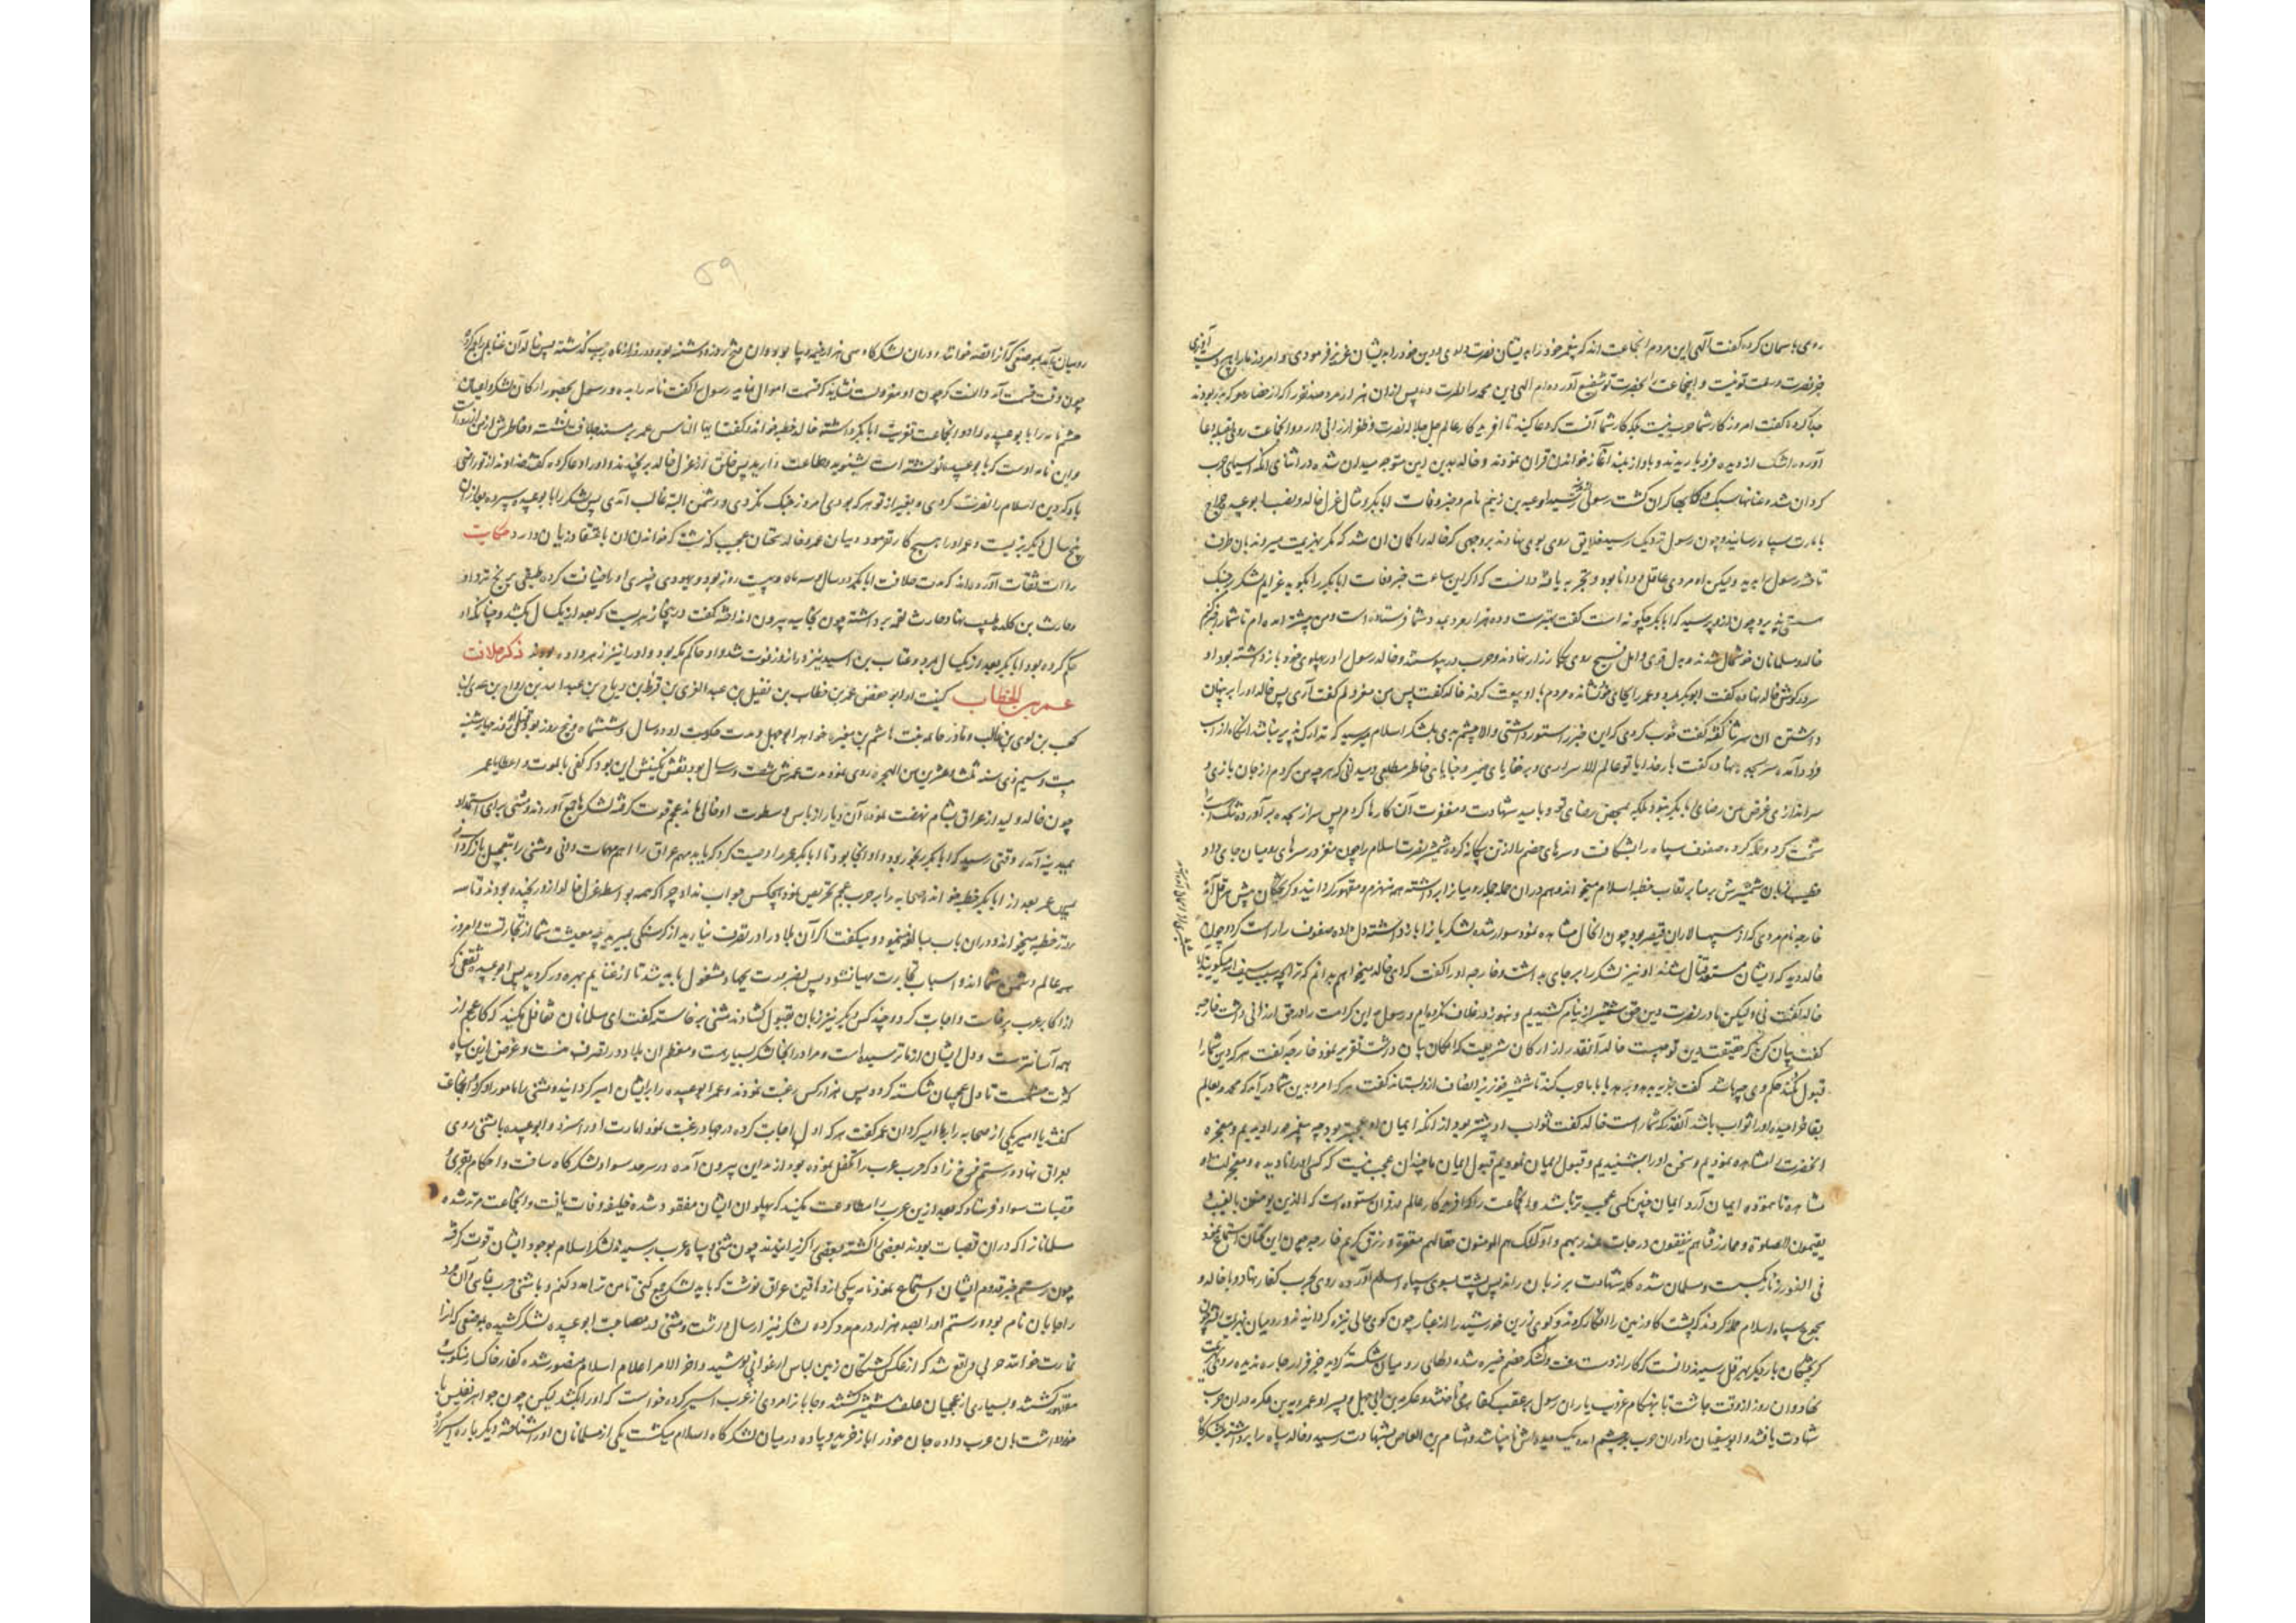 روی بآسمان کرد و گفت الهی این مردم انجماعت اند که پیغمبر خود را بدیشان نصرت دادی و دین خود را بدیشان عزیز فرمودی و امروز ما را
جز نصرت تو نیست و انجماعت را بحضرت تو شفیع آورده‌ام الهی دین محمد را نصرت ده پس از ان هزار مرد
جدا کرد و گفت امروز کار شما حرب نیست بلکه کار شما آنست که دعا کنید تا افریدکار عالم جل جلاله نصرت و ظفر ارزانی دارد و انجماعت روی بقبله دعا
آورده اشک از دیده فرو باریدند و بآواز بلند آغاز خواندن قران نمودند و خالد بدین این متوجه میدان شده در اثنای انکه اسیای حرب
کردان شده عنانها سبک و رکابها کران کشت رسولی رسید او بن زنیم نام و خبر وفات ابابکر و مثال عزل خالد و نصب ابو عبیده جراح
بامارت سپاه رسانید و چون رسول نزدیک رسید خلایق روی بوی نهادند بر وجهی که خالد را کمان ان شد که مکر بهزیمت میروند بدان طرف
تاخته رسول را بدید ولیکن او مردی عاقل و دانا بود و تجربه یافته دانست که اکر این ساعت خبر وفات ابابکر را بکوید عزایم لشکر در جنک
سستی پذیرد چون از و پرسید که ابابکر چکونه است گفت بهتر است و ده هزار مرد بمدد شما فرستاده است و من پیشتر امده‌ام تا شما را خبر کنم
خالد و مسلمانان خوشحال شدند و بدل قوی و امل فسیح روی بکارزار نهادند و حرب در پیوستند و خالد رسول را در پهلوی خود بازداشته بود او
سر در کوش خالد نهاده گفت ابو بکر بمرد و عمر را بجای او نشانده مردم با او بیعت کردند خالد گفت پس من معزولم گفت آری پس خالد او را بر پنهان
داشتن ان سر ثنا گفته گفت خوب کردی که این خبر را مستور داشتی والا چشم بدی بلشکر اسلام میرسید که تدارک پذیر نباشد انکاه از اسب
فرود آمده سر بسجده نهاد و گفت بار خدایا تو عالم الاسراری و بر خفایای ضمیر و خبایای خاطر مطلعی و میدانی که هر چه من کردم از جان بازی و
سر اندازی غرض من رضای ابابکر نبود بلکه بمحض رضای تو و بامید شهادت و مغفرت آن کارها کردم پس سر از سجده برآورده تنک اسب
سخت کرد و حمله کرده صفوف سپاه را بشکافت و سرهای خصم را از تن بیکانه کرده شمشیر نصرت اسلام را چون مغز در سرهای رومیان جای داد
خطیب زبان شمشیرش بر منابر رقاب خطبه اسلام میخواند و هم در ان حمله جمله رومیان را برداشته همه منهزم و مقهور کردانید و کریختکان پیش هرقل آمد
خارجه نام مردی که از سپهسالاران قیصر بود چون انحال مشاهده نمود سوار شده لشکریان را باز داشته دل داده صفوف را راست کرد و چون
خالد دید که ایشان مستعد قتال شدند او نیز لشکر را بر جای بداشت و خارجه او را گفت که ای خالد میخواهم بدانم که ترا بچه سبب سیف الله میکویند
خالد گفت نی ولیکن ما در نصرت دین حق شمشیر از نیام کشیدیم و هنوز در غلاف نکرده‌ایم و رسول این کرامت را در حق من ارزانی داشت خارجه
گفت بیان کن که حقیقت دین تو چیست خالد آنقدر از ارکان شریعت که امکان بیان داشت تقریر نمود خارجه گفت هر که دین شما را
قبول نکند حکم وی چه باشد گفت جزیه بدهد و یا با ما حرب کند تا شمشیر خونریز انصاف از و بستاند گفت هر که امروز بدین شما درآید که محمد از عالم
بقا خرامیده او را ثواب باشد آنقدر که شما راست خالد گفت ثواب او بیشتر بود از انکه ایمان او عجیبتر بود چه ما پیغمبر را دیدیم و معجزه
انحضرت را مشاهده نمودیم و سخن او را بشنیدیم و قبول ایمان نمودیم قبول ایمان ما چندان عجب نیست که کسی او را نادیده و معجزات او
مشاهده نا نموده ایمان آرد ایمان چنین کسی عجیب‌تر باشد و انجماعت را افریدکار عالم در قران ستوده است که الذین یومنون بالغیب و
یقیمون الصلوة و مما رزقناهم ینفقون درجات عند ربهم و اولئک هم المومنون حقا لهم مغفرة و رزق کریم خارجه چون این سخنان استماع نمود
فی الفور مسلمان شده کلمه شهادت بر زبان رانده پس پشت بسوی سپاه اسلام آورده روی بحرب کفار نهاد و با خالد و
مجموع سپاه اسلام حمله کردند که پشت کاو زمین را افکار کردند و کوی زرین خورشید را از غبار چون کوی خالی تیره کردانیدند و رومیان
کریختکان بار دیکر بهرقل رسیدند دانست که کار از دست رفت و لشکر خصم چیره شده دلهای رومیان شکسته کردید جز فرار چاره ندیده روی
نهاد و ان روز از وقت چاشت تا بهنکام غروب یاران رسول بر عقب کفار می‌تاختند و عکرمه بن ابی جهل و پسر او عمرو بن عکرمه در ان حرب
شهادت یافتند و ابو سفیان را در ان حرب بر چشم امده یک دیده‌اش نابینا شد و هشام بن العاص بشهادت رسید و خالد سپاه را برداشته بلشکرکاه
۵۹
رومیان آمد بموضعی که آنرا خوانند و در ان لشکرکاه سی هزار خیمه و بپا بود و ان فتح روز دوشنبه بود و دو روز از ماه رجب گذشته پس خالد آن غنایم را جمع کرد
چون وقت قسمت آمد دانست که چون او معزولست نشاید که قسمت اموال نماید رسول را گفت نامه را بده و رسول بحضور ارکان لشکر و اعیان
حشم نامه را بابو عبیده داد و انجماعت تعزیت ابابکر داشته خالد خطبه خواند و گفت ایها الناس عمر بر مسند خلافت نشسته و خاطرش از من
و این نامه اوست که بابو عبیده نوشته است بشنوید و مطاعت دارید پس خلق از عزل خالد برنجیدند و او را دعا کرده گفتند خداوند از تو راضی
باد که دین اسلام را نصرت کردی و بغیر از تو هر که بودی امروز جنک نکردی و دشمن البته غالب آمدی پس لشکر را بابو عبیده سپرده بعد از ان
پنج سال دیکر بزیست و عمر او را هیچ کار نفرمود و میان عمر و خالد سخنان عجب گذشت که خواندن ان باعتقاد زیان دارد حکایت
روات ثقات آورده‌اند که مدت خلافت ابابکر دو سال و سه ماه و بیست روز بود و یهودی خیبری او را ضیافت کرده طبقی برنج نزد او
و حارث بن کلده طبیب نهاد و حارث لقمه برداشته چون بخایید بیرون انداخته گفت در اینجا زهریست که بعد از یکسال بکشد و چنانکه او
حکم کرده بود ابابکر بعد از یکسال بمرد و عتاب بن اسید نیز در انروز فوت شد و او حاکم مکه بود و او را نیز زهر داده بودند ذکر خلافت
عمر بن الخطاب کنیت او ابو حفص عمر بن خطاب بن نفیل بن عبد العزی بن قرط بن ریاح بن عبد الله بن رزاح بن عدی بن
کعب بن لوی بن غالب و مادر حنتمه بنت هاشم بن مغیره خواهر ابو جهل و مدت حکومت او ده سال و ششماه و پنج روز بود روز چهارشنبه
بیست و سیم ذی سنه ثلث و عشرین من الهجره روی نمود مدت عمرش شصت و سه سال بود نقش نکینش این بود که کفی بالموت واعظا یا عمر
چون خالد ولید از عراق بشام نهضت نمود آن دیار از باس و سطوت او خالی ماند عجم قوت گرفته لشکرها جمع آوردند و مثنی برای استمداد
بمدینه آمد وقتی رسید که ابابکر رنجور بود و او انجا بود تا ابابکر عمر را وصیت کرد که باید مهم عراق را اهم مهمات دانی و مثنی را بتعجیل بازکردانی
پس عمر بعد از ابابکر خطبه خواند و صحابه را بر حرب عجم تحریص نمود هیچکس جواب نداد چرا که همه بواسطه عزل خالد از و رنجیده بودند و تا سه
روز خطبه میخواند و در ان باب مبالغه مینمود و میکفت اکر آن بلاد را در تصرف نیارید از کرسنکی بمیرید چه معیشت شما از تجارتست و امروز
همه عالم دشمن شما اند و اسباب تجارت مهیا نشود پس بضرورت بجهاد مشغول باید شد تا از غنایم بهره‌ور کردید پس ابو عبیده ثقفی که
از اکابر عرب برخاست و اجابت کرد و چند کس دیکر نیز زبان بقبول کشادند مثنی برخاسته گفت ای مسلمانان تغافل مکنید که کار عجم از
همه آسانترست و دل ایشان از ما ترسیده است و مرا در انجا لشکر بسیارست و معظم ان بلاد در تصرف منست و غرض از این سپاه
کثرت حشمست تا دل عجمیان شکسته کردد پس هزار کس رغبت نمودند و عمر ابو عبیده را بر ایشان امیر کردانید و مثنی را مامور او کرد و انجماعت
گفتند یا امیر یکی از صحابه را بر ما امیر کردان عمر گفت هر که اول اجابت کرده در جهاد رغبت نمود امارت او را سزد و ابو عبیده با مثنی روی
بعراق نهاد و رستم فرخ زاد که حرب عرب را تکفل نموده بود از مداین بیرون آمده در سرحد سواد لشکرکاه ساخت و احکام بقری و
قصبات سواد فرستاد که بعد ازین عرب را مطاوعت مکنید که پهلوان ایشان مفقود شده خلیفه وفات یافت و انجماعت مرتد شده
مسلمانان را که در ان قصبات بودند بعضی را کشته بعضی را کریزانیدند چون مثنی و سپاه عرب برسیدند لشکر اسلام بوجود ایشان قوت گرفته
چون رستم خبر قدوم ایشان استماع نمود نامه بیکی از دهاقین عراق نوشت که باید لشکر جمع کنی تا من ترا مدد کنم و با مثنی حرب نمای و آن مرد
را جابان نام بود و رستم او را بصد هزار درم مدد کرده لشکر نیز ارسال داشت و مثنی در مصاحبت ابو عبیده لشکر کشیده بموضعی که انرا
نمارت خوانند حربی واقع شد که از عکس کشتکان زمین لباس ارغوانی پوشید و اخر الامر اعلام اسلام منصور شده کفار خاکسار منکوب و
مقهور کشتند و بسیاری از عجمیان علف شمشیر کشتند و جابان را مردی از عرب اسیر کرده خواست که او را بکشد لیکن چون جواهر نفیس با
خود داشت بدان عرب داده جان خود را باز خرید و پیاده در میان لشکرکاه اسلام میکشت یکی از مسلمانان او را شناخته دیکر باره اسیر کرد